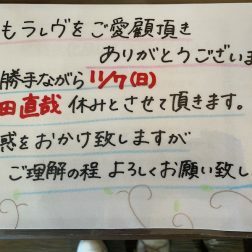 もラレヴをご愛顧頂き
ありがとうございま
勝手ながら 11/7(日)
田直哉 休みとさせて頂きます。
惑をおかけ致しますが
ご理解の程 よろしくお願い致し